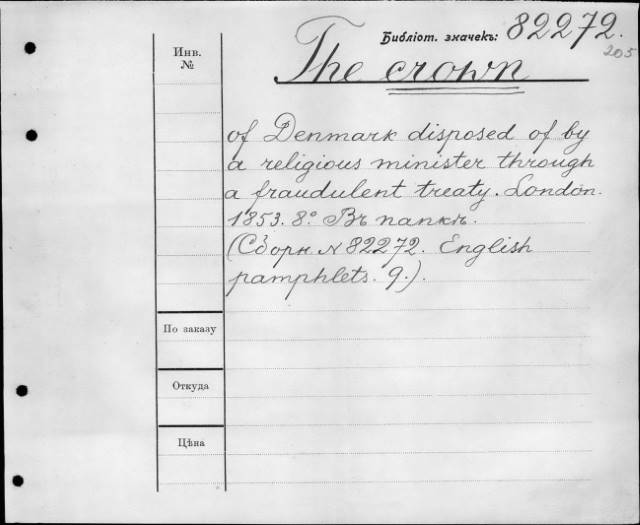 Библіот. значекъ: 82272.
205
Инв.
№
The crown
of Denmark disposed of by
a religious minister through
a fraudulent treaty. London.
1853. 8º Въ папкѣ.
(Сборн № 82272. English
pamphlets. 9.).
По заказу
Откуда
Цѣна